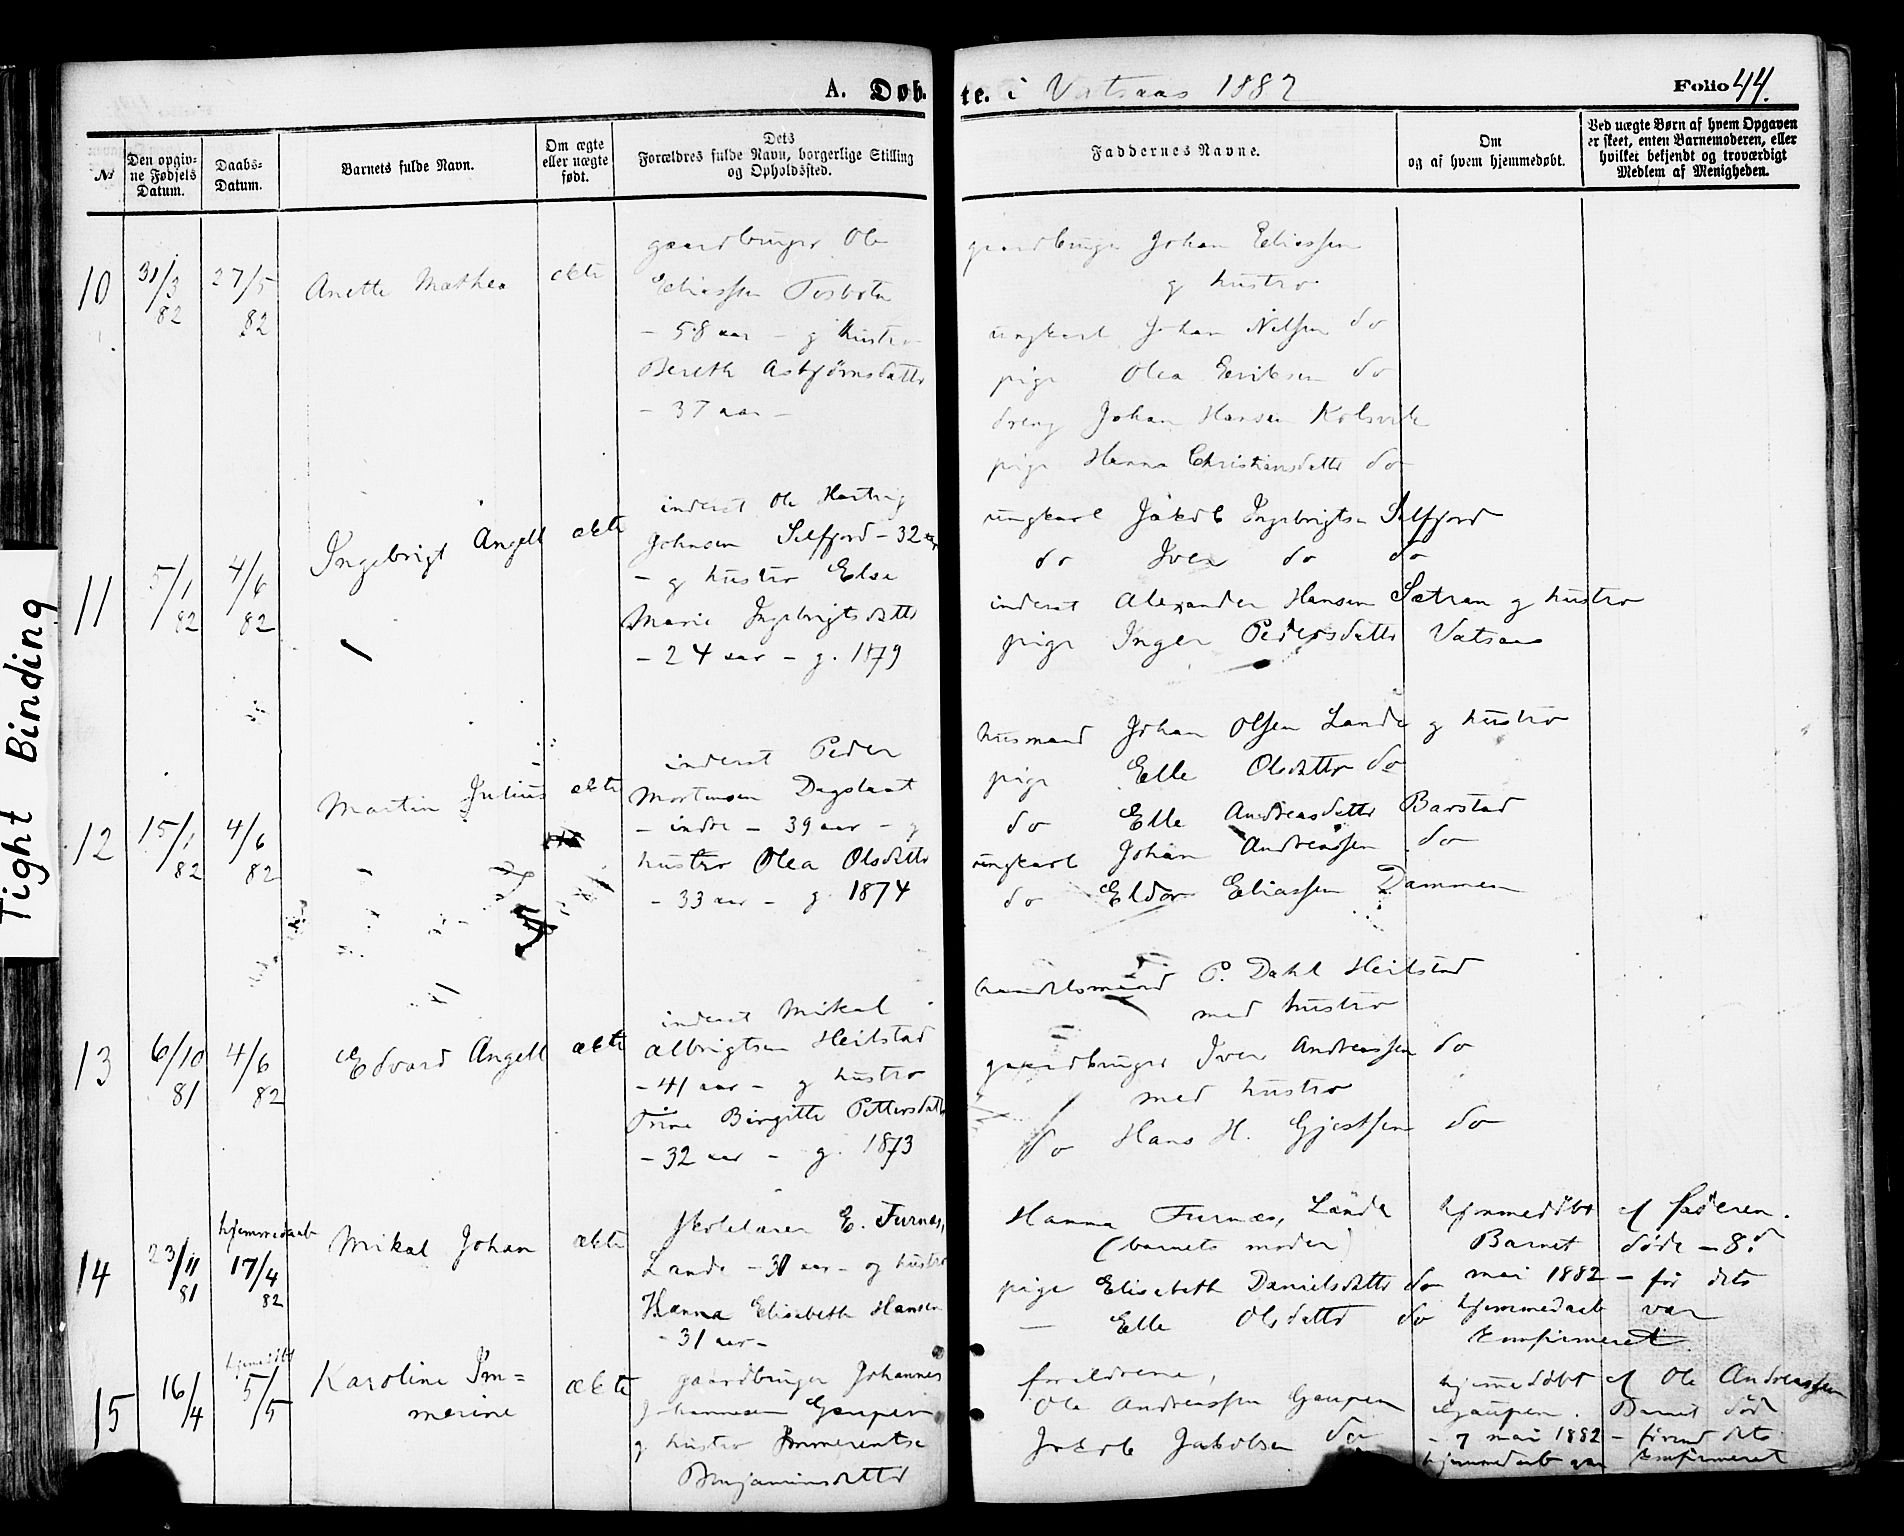 A. Døb. te. i Vatsaas 1882 Folio 44.
No
Den opgivne Fødsels Datum.
Daabs-Datum.
Barnets fulde Navn.
Om ægte eller uægte født.
Dets Forældres fulde Navn, borgerlige Stilling og Opholdssted.
Faddernes Navne.
Om og af hvem hjemmedøbt.
Ved uægte Børn af hvem Opgaven er skeet, enten Barnemoderen, eller hvilket bekjendt og troværdigt Medlem af Menigheden.
10 31/3 82 27/5 82 Anette Mathea ekte
gaardbruger Ole
Eliassen Tosboten
- 58 aar - g hustro
Bereth Asbjørnsdattr
- 37 aar -
gaardbruger Johan Eliassen
g hustro
ungkarl Johan Nilssen do
pige Olea Eriksen do
dreng Johan Hansen Kolsvik
pige Hanna Christiansdattr do
11 5/1 82 4/6 82 Ingebrigt Angell ekte
inderst Ole Hartvig
Johnsen Selfjord - 32 aar
- g hustro Else
Marie Ingebrigtsdattr
- 24 aar - g. 1879
ungkarl Jakob Ingebrigtsen Selfjord
do Iver do do
inderst Alexander Hansen Sætran g hustro
pige Inger Pedersdattr Vatsaas
12 15/1 82 4/6 82 Martin Julius ekte
inderst Peder
Mortensen Dagslaat
- indre - 39 aar - g
hustro Olea Olsdattr
- 33 aar - g. 1874
husmand Johan Olssen Lande g hustro
pige Elle Olsdattr do
do Elle Andreasdattr Barstad
ungkarl Johan Andreassen do
do Eldor Eliassen Dammen
13 6/10 81 4/6 82 Edvard Angell ekte
inderst Mikal
Albrigtsen Heilstad
- 41 aar - g hustro
Trine Birgitte Pettersdattr
- 32 aar - g. 1873
handelsmand P. Dahl Heilstad
med hustro
gaardbruger Iver Andreassen do
med hustro
do Hans H. Gjestsen do
14 23/11 81 hjemmedaab 17/4 82 Mikal Johan ekte
skolelærer E. Furnæs,
Lande - 31 aar - og hustro
Hanna Elisabeth Hansen
- 31 aar -
Hanna Furnæs, Lande
(barnets moder)
pige Elisabeth Danielsdattr do
- Elle Olsdattr do
hjemmedøbt af faderen.
Barnet døde - 8d
mai 1882 - før dets
hjemmedaab var
konfirmeret.
15 16/4 hjemdøbt 5/5 Karoline Im=
merine ekte
gaardbruger Johannes
Johannesen Gaupen
g hustro Immerentse
Benjaminsdattr
forældrene,
Ole Andreassen Gaupen
Jakob Jakobsen do
hjemedøbt af Ole Andreassen
Gaupen. Barnet døde
- 7 mai 1882 - førend dets
hjemmedaab var konfirmeret
Tight Binding